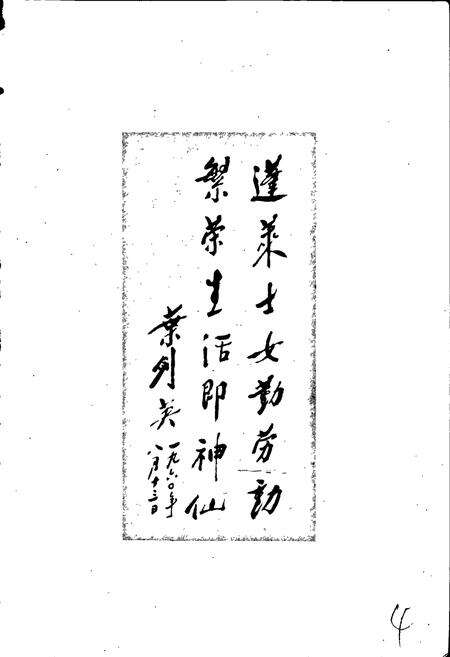 蓬莱士女勤劳动
繁荣生活即神仙
葉剑英
一九六〇年
八月十三日
4